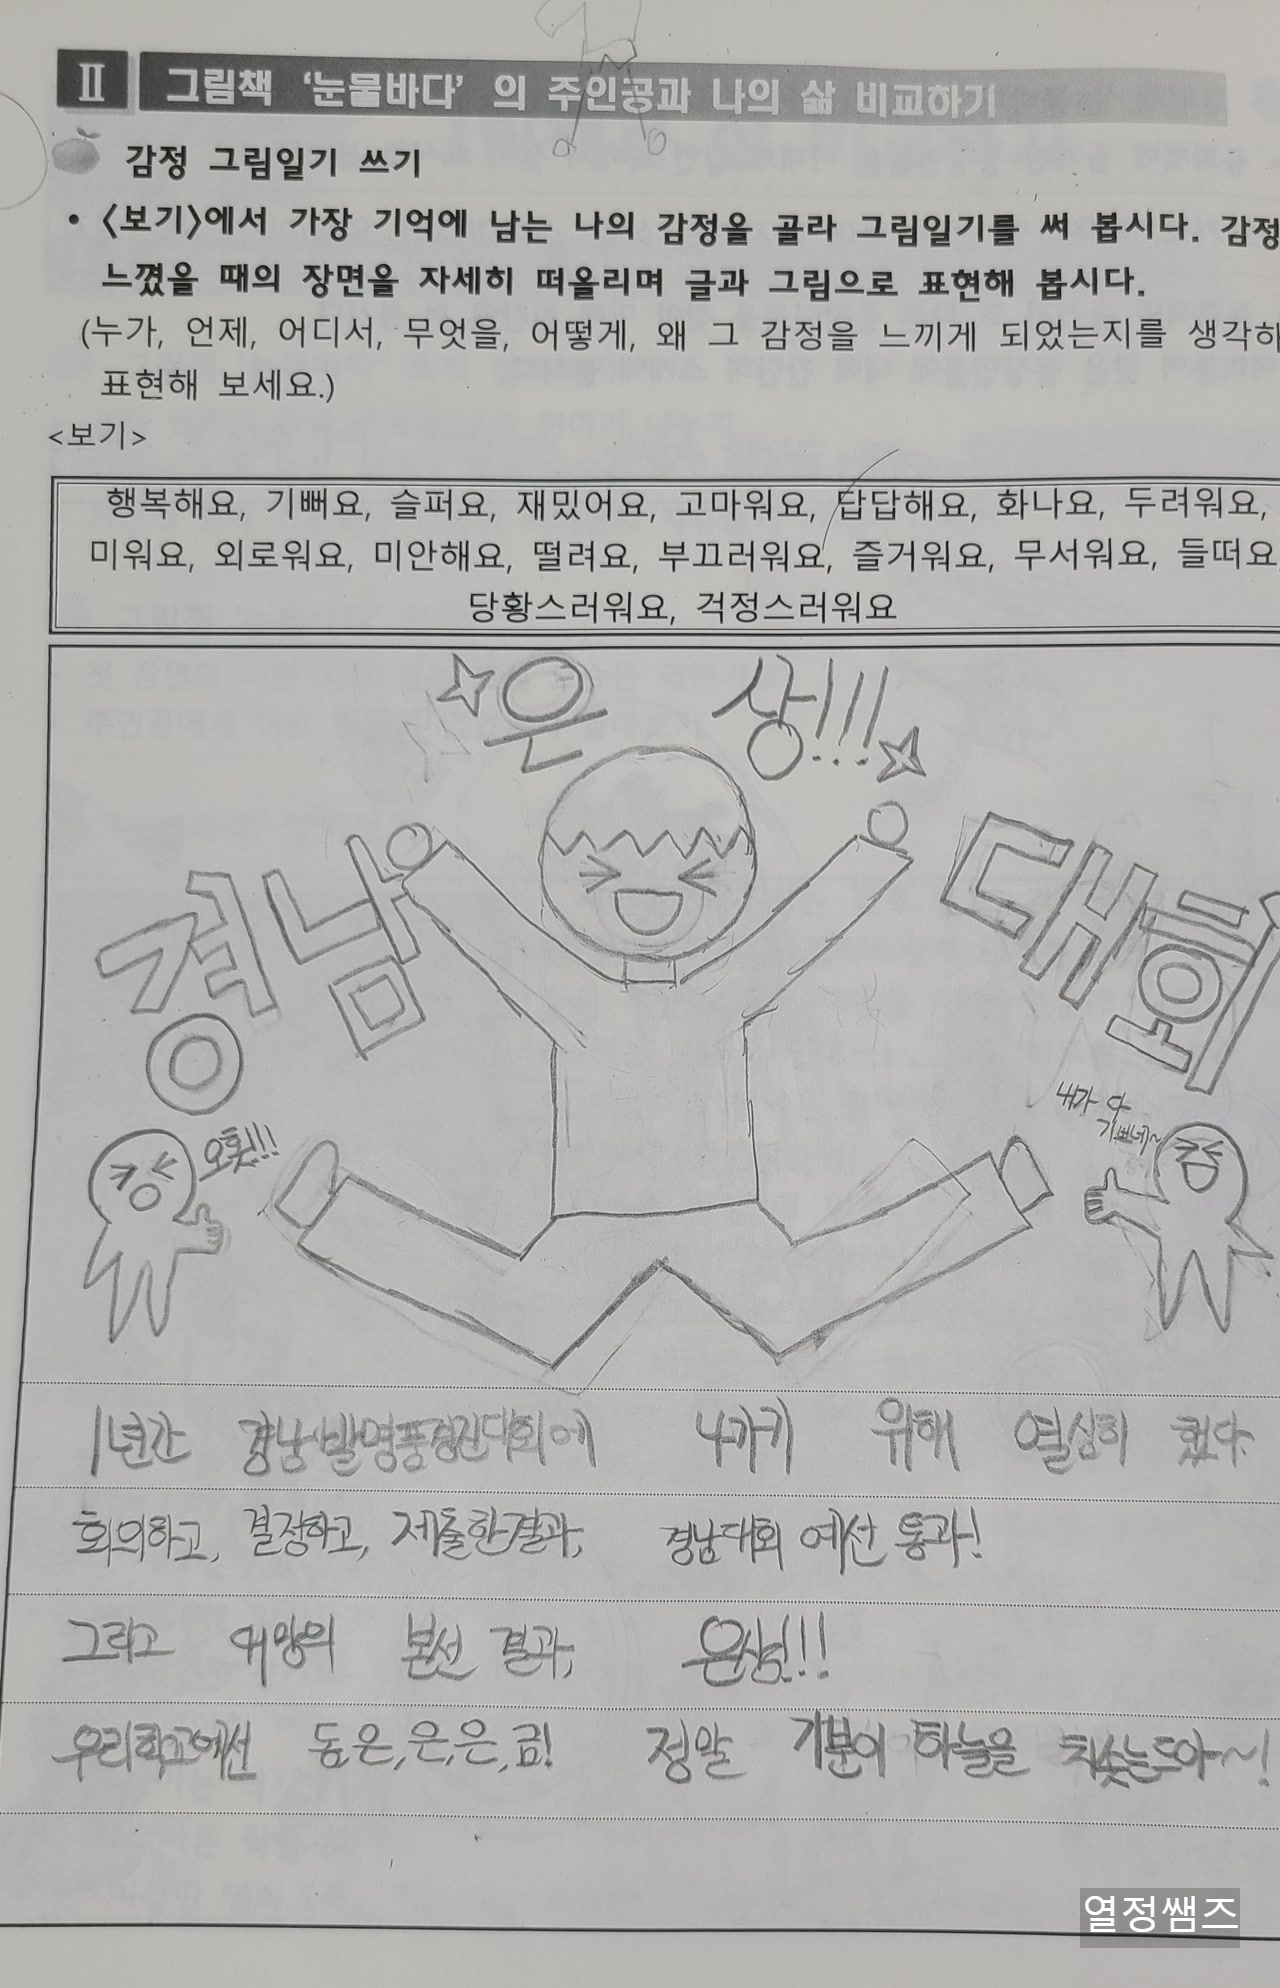 Ⅱ 그림책 '눈물바다' 의 주인공과 나의 삶 비교하기
감정 그림일기 쓰기
• <보기>에서 가장 기억에 남는 나의 감정을 골라 그림일기를 써 봅시다. 감정
느꼈을 때의 장면을 자세히 떠올리며 글과 그림으로 표현해 봅시다.
(누가, 언제, 어디서, 무엇을, 어떻게, 왜 그 감정을 느끼게 되었는지를 생각하
표현해 보세요.)
<보기>
행복해요, 기뻐요, 슬퍼요, 재밌어요, 고마워요, 답답해요, 화나요, 두려워요,
미워요, 외로워요, 미안해요, 떨려요, 부끄러워요, 즐거워요, 무서워요, 들떠요,
당황스러워요, 걱정스러워요
은 상!!!
경남 대회
오홋!!!
내가 다
기쁘네~
1년간 경남 발명품경진대회에 나가기 위해 열심히 했다.
회의하고, 결정하고, 제출한결과, 경남대회 예선 통과!
그리고 대망의 본선 결과, 은상!!!
우리학교에선 동,은,은,은,금! 정말 기분이 하늘을 치솟는드아~!
열정쌤즈